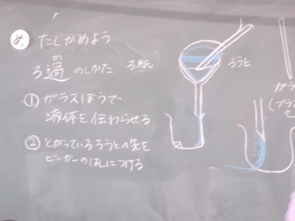 め たしかめよう
ろ過のしかた
か
ろ紙
ろうと
① ガラスぼうで
液体を伝わらせる
② とがっているろうとの先を
ビーカーのはしにつける
ガラ